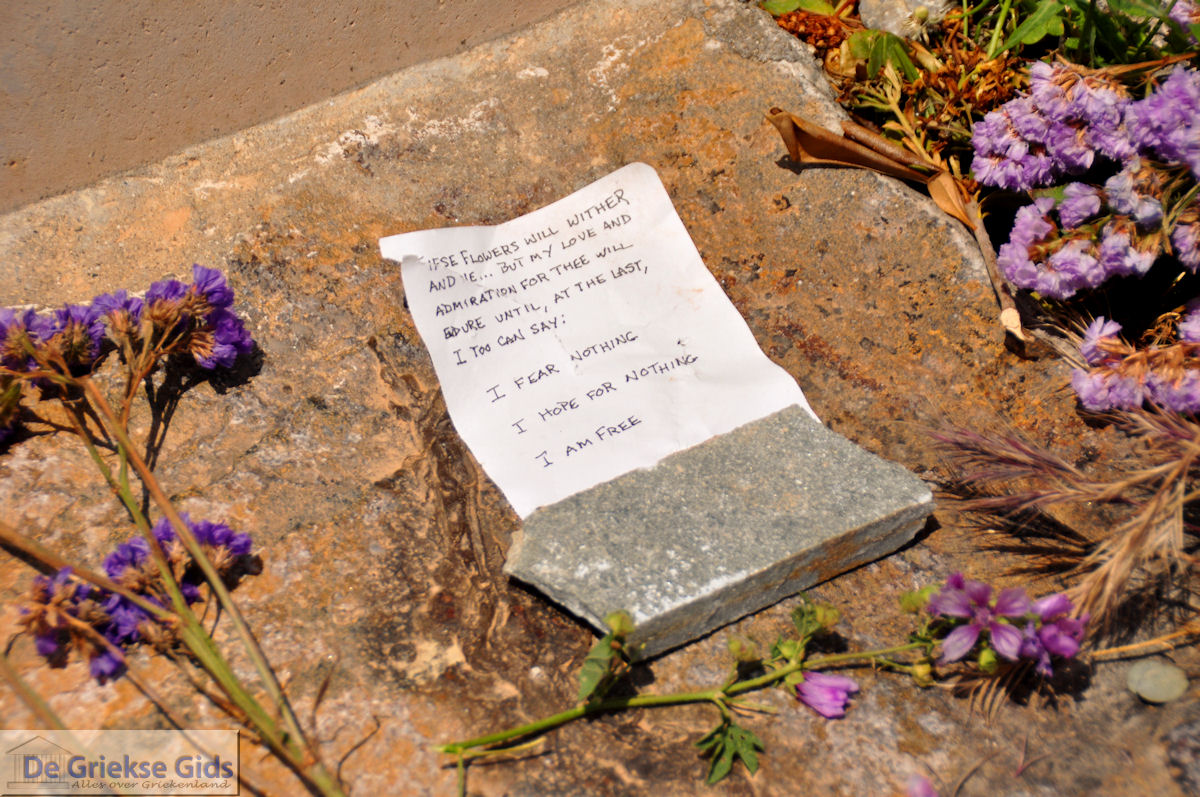 FLOWERS WILL WITHER
AND ... BUT MY LOVE AND
ADMIRATION FOR THEE WILL
EDURE UNTIL, AT THE LAST,
I TOO CAN SAY:
I FEAR NOTHING
I HOPE FOR NOTHING
I AM FREE
De Griekse Gids
Alles over Griekenland